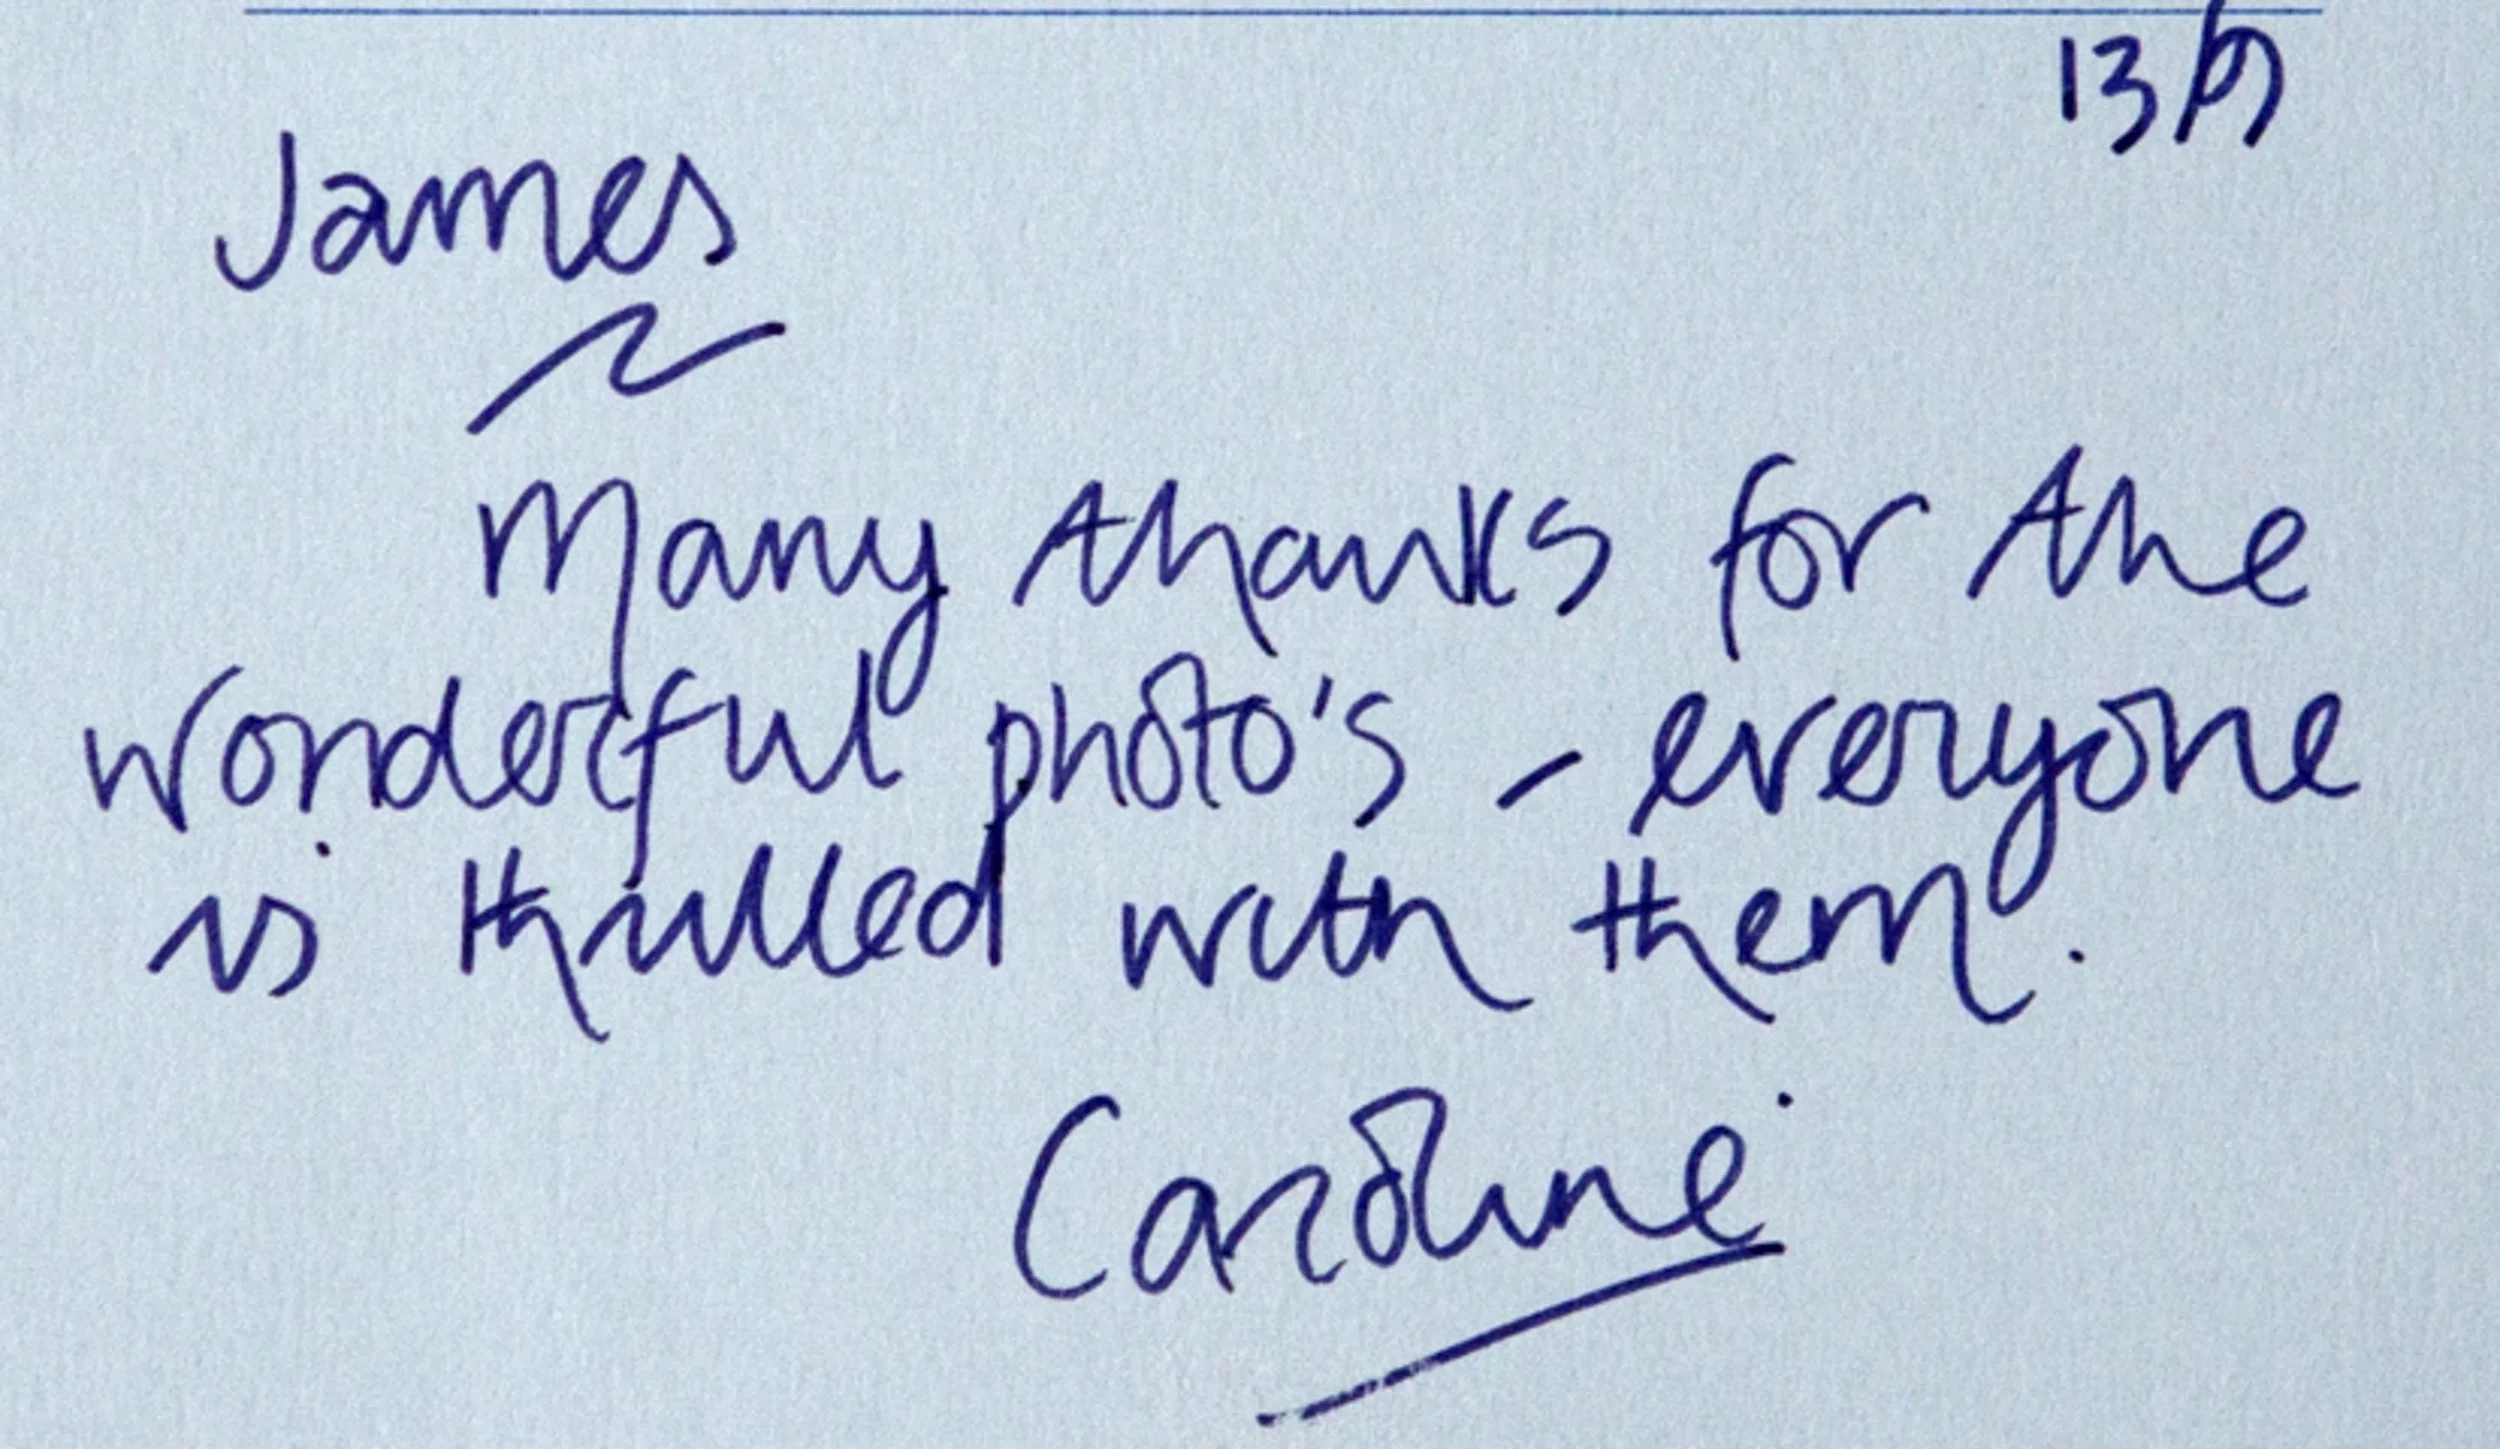 13/9
James
Many thanks for the
wonderful photo's - everyone
is thrilled with them.
Caroline